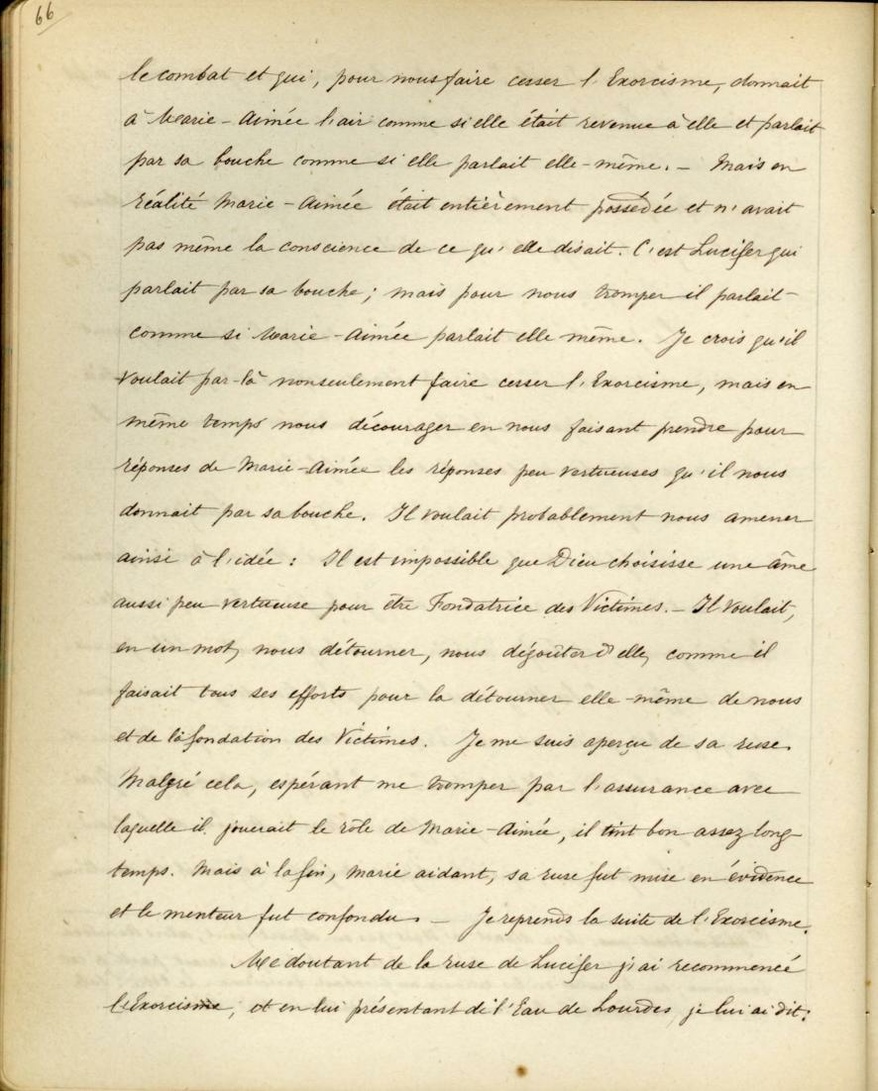 66
le combat et qui, pour nous faire cesser l'Exorcisme, donnait
à Marie-Aimée l'air comme si elle était revenue à elle et parlait
par sa bouche comme si elle parlait elle-même. - Mais en
réalité Marie-Aimée était entièrement possédée et n'avait
pas même la conscience de ce qu'elle disait. C'est Lucifer qui
parlait par sa bouche; mais pour nous tromper il parlait
comme si Marie-Aimée parlait elle même. Je crois qu'il
voulait par-là nonseulement faire cesser l'Exorcisme, mais en
même temps nous décourager en nous faisant prendre pour
réponses de Marie-Aimée les réponses peu vertueuses qu'il nous
donnait par sa bouche. Il voulait probablement nous amener
ainsi à l'idée : Il est impossible que Dieu choisisse une âme
aussi peu vertueuse pour être Fondatrice des Victimes. - Il voulait,
en un mot, nous détourner, nous dégoûter d'elle, comme il
faisait tous ses efforts pour la détourner elle-même de nous
et de la fondation des Victimes. Je me suis aperçu de sa ruse.
Malgré cela, espérant me tromper par l'assurance avec
laquelle il jouerait le rôle de Marie-Aimée, il tint bon assez long-
temps. Mais à la fin, Marie aidant, sa ruse fut mise en évidence
et le menteur fut confondu. - Je reprends la suite de l'Exorcisme.
Me doutant de la ruse de Lucifer j'ai recommencé
l'Exorcisme, et en lui présentant de l'Eau de Lourdes, je lui ai dit: